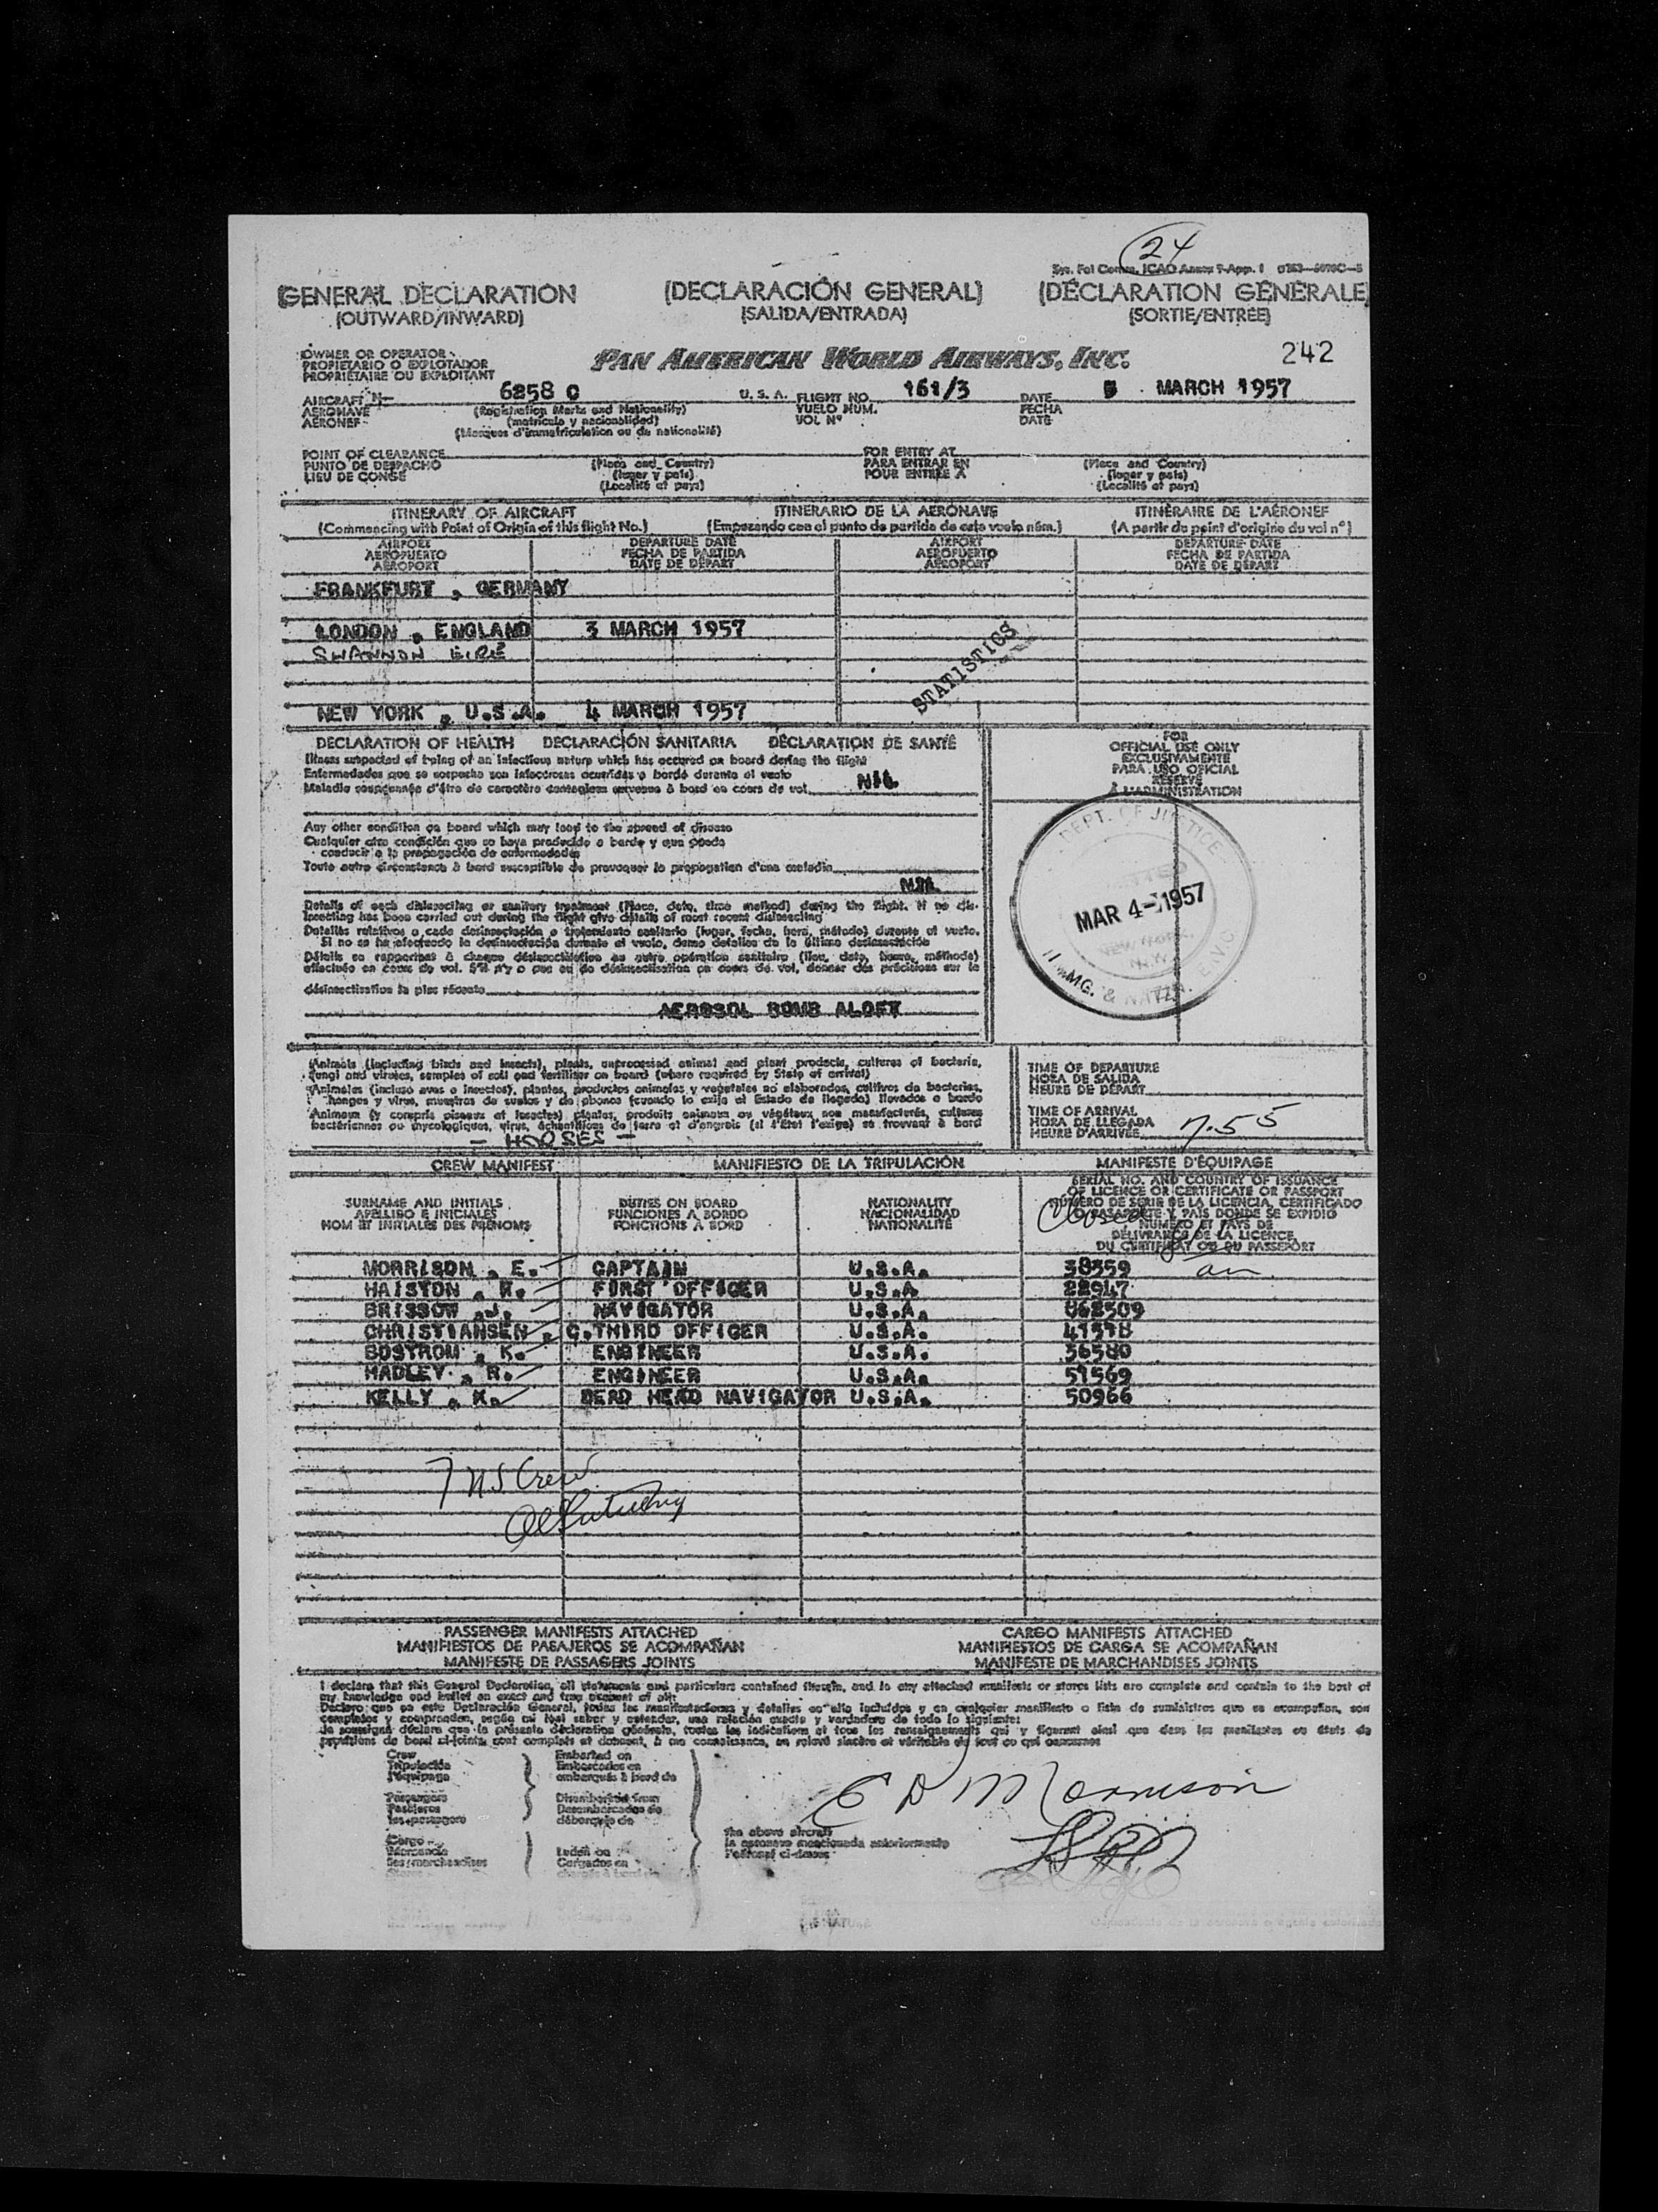 24
GENERAL DECLARATION (DECLARACIÓN GENERAL) (DÉCLARATION GÉNÉRALE)
(OUTWARD/INWARD) (SALIDA/ENTRADA) (SORTIE/ENTRÉE)
OWNER OR OPERATOR
PROPIETARIO O EXPLOTADOR
PROPRIÉTAIRE OU EXPLOITANT
PAN AMERICAN WORLD AIRWAYS, INC. 242
AIRCRAFT N- 6258 C U.S.A. FLIGHT NO. 161/3 DATE MARCH 1957
AERONAVE (Registration Marks and Nationality) VUELO NÚM. FECHA
AÉRONEF (matrícula y nacionalidad) VOL Nº DATE
(Marques d'immatriculation ou de nationalité)
POINT OF CLEARANCE FOR ENTRY AT
PUNTO DE DESPACHO (Place and Country) PARA ENTRAR EN (Place and Country)
LIEU DE CONGÉ (lugar y país) POUR ENTRÉE À (lugar y país)
(Localité et pays) (Localité et pays)
ITINERARY OF AIRCRAFT ITINERARIO DE LA AERONAVE ITINÉRAIRE DE L'AÉRONEF
(Commencing with Point of Origin of this flight No.) (Empezando con el punto de partida de este vuelo núm.) (A partir du point d'origine du vol nº)
AIRPORT DEPARTURE DATE AIRPORT DEPARTURE DATE
AEROPUERTO FECHA DE PARTIDA AEROPUERTO FECHA DE PARTIDA
AÉROPORT DATE DE DÉPART AÉROPORT DATE DE DÉPART
FRANKFURT , GERMANY
LONDON , ENGLAND 3 MARCH 1957
SHANNON EIRE
STATISTICS
NEW YORK , U.S.A. 4 MARCH 1957
DECLARATION OF HEALTH DECLARACIÓN SANITARIA DÉCLARATION DE SANTÉ
Illness suspected of being of an infectious nature which has occured on board during the flight
Enfermedades que se sospecha son infecciosas ocurridas a bordo durante el vuelo
Maladie soupçonnée d'être de caractère contagieux survenue à bord en cours de vol NIL
Any other condition on board which may lead to the spread of disease
Cualquier otra condición que se haya producido a bordo y que pueda
conducir a la propagación de enfermedades
Toute autre circonstance à bord susceptible de provoquer la propagation d'une maladie
NIL
Details of each disinsecting or sanitary treatment (Place, date, time method) during the flight. If no dis-
insecting has been carried out during the flight give details of most recent disinsecting
Detalles relativos a cada desinsectación o tratamiento sanitario (lugar, fecha, hora, método) durante el vuelo.
Si no se ha efectuado la desinsectación durante el vuelo, dense detalles de la última desinsectación
Détails se rapportant à chaque désinsectisation ou autre opération sanitaire (lieu, date, heure, méthode)
effectuée en cours de vol. S'il n'y a pas eu de désinsectisation en cours de vol, donner des précisions sur la
désinsectisation la plus récente
AEROSOL BOMB ALOFT
FOR
OFFICIAL USE ONLY
EXCLUSIVAMENTE
PARA USO OFICIAL
RÉSERVÉ
À L'ADMINISTRATION
DEPT. OF JUSTICE
MAR 4- 1957
NEW YORK,
N.Y.
IMMG. & NATZN.
Animals (including birds and insects), plants, unprocessed animal and plant products, cultures of bacteria,
fungi and viruses, samples of soil and fertiliser on board (where required by State of arrival)
Animales (incluso aves e insectos), plantas, productos animales y vegetales no elaborados, cultivos de bacterias,
hongos y virus, muestras de suelos y de abonos (cuando lo exija el Estado de llegada) llevados a bordo
Animaux (y compris oiseaux et insectes) plantes, produits animaux ou végétaux non manufacturés, cultures
bactériennes ou mycologiques, virus, échantillons de terre et d'engrais (si l'État l'exige) se trouvant à bord
- HORSES -
TIME OF DEPARTURE
HORA DE SALIDA
HEURE DE DÉPART
TIME OF ARRIVAL
HORA DE LLEGADA
HEURE D'ARRIVÉE 7.55
CREW MANIFEST MANIFIESTO DE LA TRIPULACIÓN MANIFESTE D'ÉQUIPAGE
SURNAME AND INITIALS
APELLIDO E INICIALES
NOM ET INITIALES DES PRÉNOMS
DUTIES ON BOARD
FUNCIONES A BORDO
FONCTIONS À BORD
NATIONALITY
NACIONALIDAD
NATIONALITÉ
SERIAL NO. AND COUNTRY OF ISSUANCE
OF LICENCE OR CERTIFICATE OR PASSPORT
NÚMERO DE SERIE DE LA LICENCIA, CERTIFICADO
O PASAPORTE Y PAIS DONDE SE EXPIDIÓ
NUMÉRO ET PAYS DE
DÉLIVRANCE DE LA LICENCE
DU CERTIFICAT OU DU PASSEPORT
Closed
MORRISON , E. CAPTAIN U.S.A. 38559
HAISTON , R. FIRST OFFICER U.S.A. 22947
BRISSOW , J. NAVIGATOR U.S.A. 862509
CHRISTIANSEN , C. THIRD OFFICER U.S.A. 41578
BOSTROM , K. ENGINEER U.S.A. 36580
HADLEY , R. ENGINEER U.S.A. 51569
KELLY , K. DERD HEAD NAVIGATOR U.S.A. 50966
7 U.S. Crew
PASSENGER MANIFESTS ATTACHED CARGO MANIFESTS ATTACHED
MANIFIESTOS DE PASAJEROS SE ACOMPAÑAN MANIFIESTOS DE CARGA SE ACOMPAÑAN
MANIFESTE DE PASSAGERS JOINTS MANIFESTE DE MARCHANDISES JOINTS
I declare that this General Declaration, all statements and particulars contained therein, and in any attached manifests or stores lists are complete and contain to the best of
my knowledge and belief an exact and true account of all:
Declaro que en esta Declaración General, todas las manifestaciones y detalles en ella incluidos y en cualquier manifiesto o lista de suministros que se acompañan, son
completos y comprenden, según mi leal saber y entender, una relación exacta y verdadera de todo lo siguiente:
Je soussigné déclare que la présente déclaration générale, toutes les indications et tous les renseignements qui y figurent ainsi que dans les manifestes ou états de
provisions de bord ci-joints sont complets et donnent, à ma connaissance, un relevé sincère et véritable de tout ce qui concerne
Crew Embarked on
Tripulación Embarcados en
l'équipage embarqués à bord de
Passengers Disembarked from
Pasajeros Desembarcados de
les passagers débarqués de
Cargo
Mercancía Laden on
les marchandises Cargados en
the above aircraft
la aeronave mencionada anteriormente
l'aéronef ci-dessus
E D Morrison